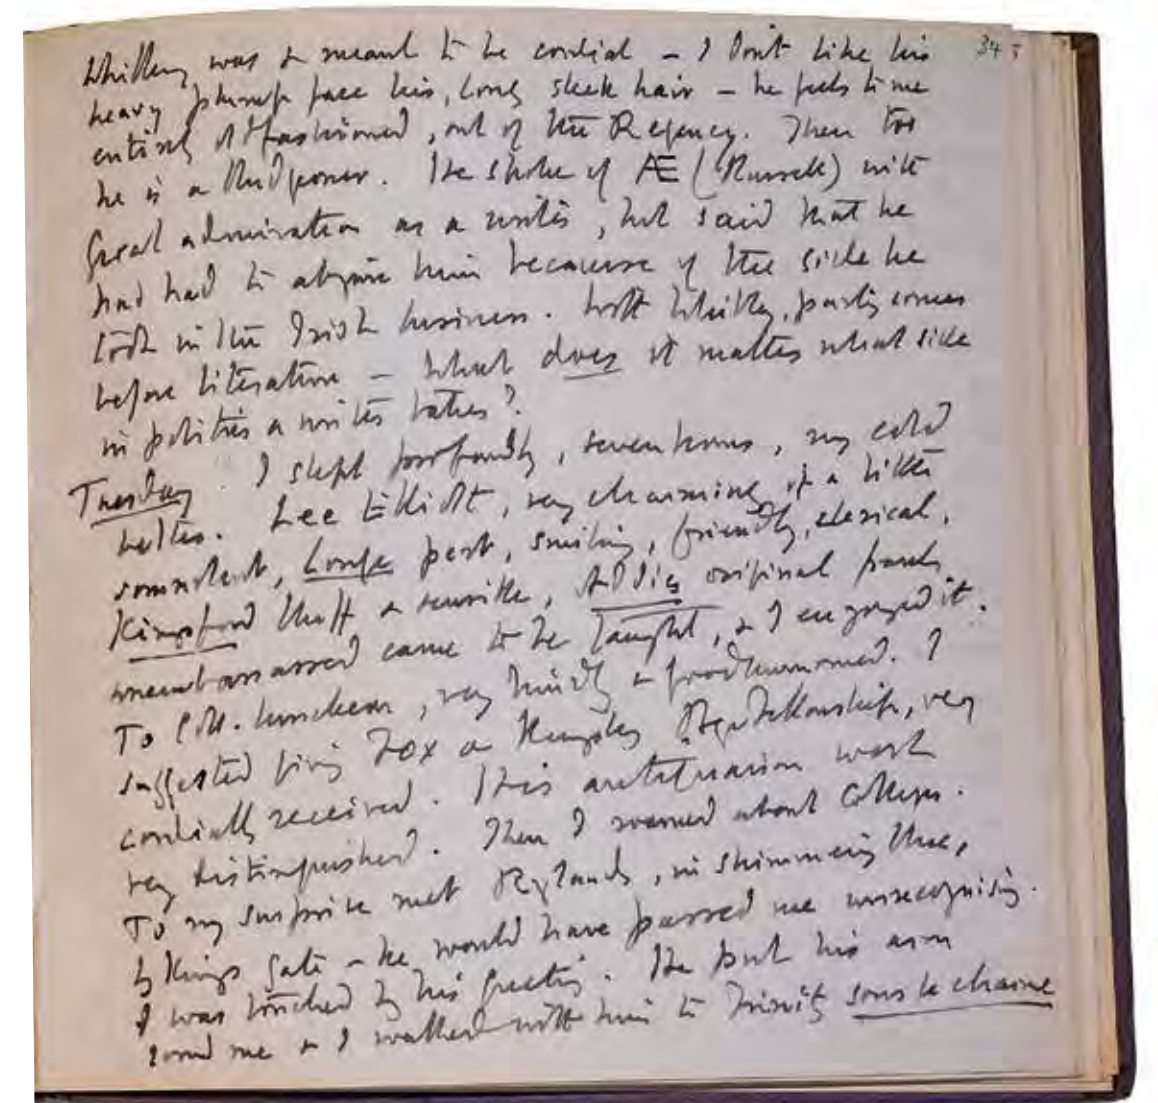 34
Whibley was & meant to be cordial – I don't like his
heavy plump face his, long sleek hair – he feels to me
entirely old fashioned, out of the Regency. Then too
he is a He spoke of Æ (Russell) with
great admiration as a writer, but said that he
had had to abjure him because of the side he
took in the Irish business. With Whibley, party comes
before literature – What does it matter what side
in politics a writer takes?
Tuesday. I slept profoundly, seven hours, my cold
better. Lee Elliott, very charming if a little
somnolent, pert, smiling, friendly, clerical,
Kingsford, Addis original frank
unembarrassed came to be taught, & I enjoyed it.
To luncheon, very kindly & goodhumoured. I
suggested giving Fox a Kempley Fellowship, very
cordially received. His antiquarian work
very distinguished. Then I roamed about Colleges.
To my surprise met Rylands, in shimmering blue,
by Kings gate – he would have passed me unrecognising.
I was touched by his greeting. He put his arm
round me & I walked with him to Trinity sous le charme